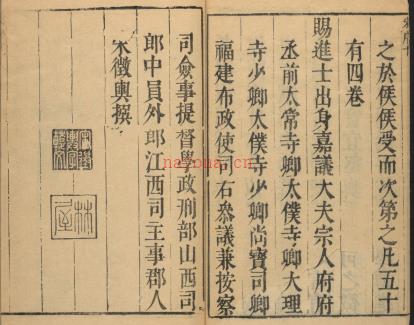 之於侯侯受而次第之凡五十
有四卷
賜進士出身嘉議大夫宗人府府
丞前太常寺卿太僕寺卿大理
寺少卿太僕寺少卿尚寶司卿
福建布政使司右叅議兼按察
司僉事提督學政刑部山西司
郎中員外郎江西司主事郡人
宋徵輿撰
nayona.cn